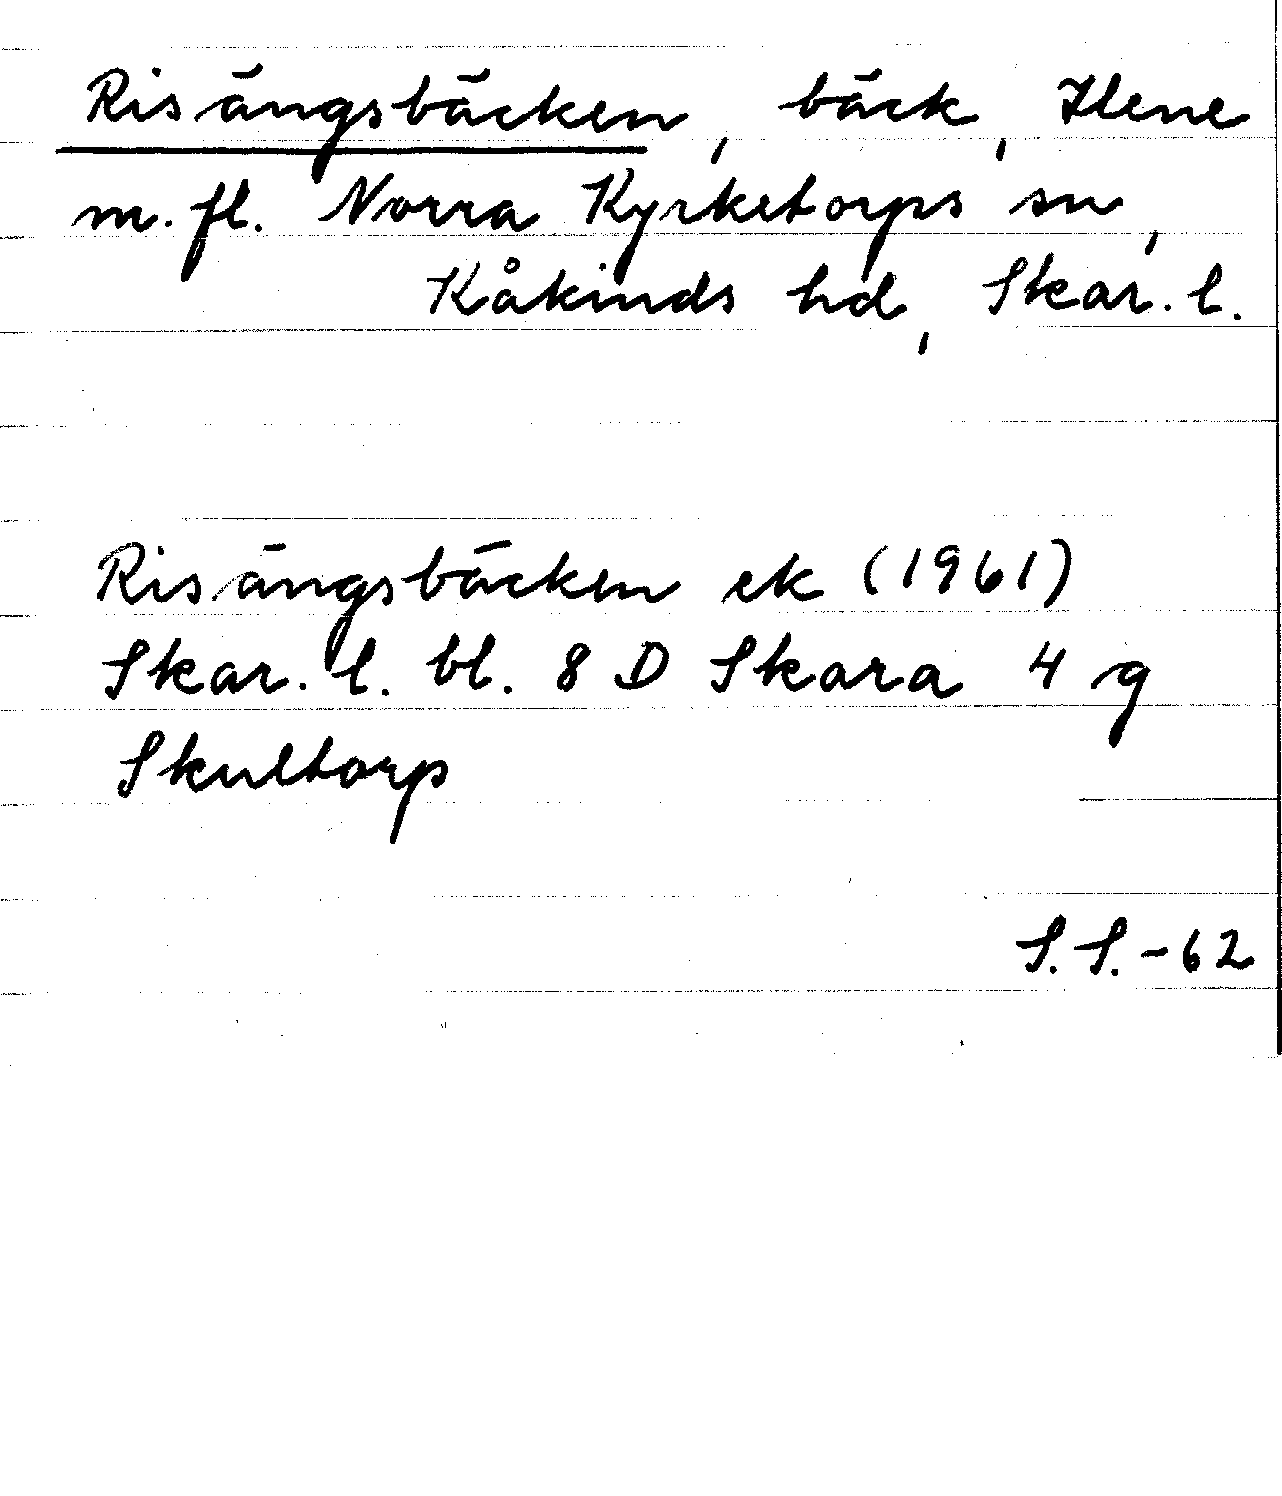 Risängsbäcken, bäck, Ilene
m. fl. Norra Kyrketorps sn,
Kåkinds hd, Skar. l.
Risängsbäcken ek (1961)
Skar. l. bl. 8 D Skara 4 g
Skultorp
S. S. -62